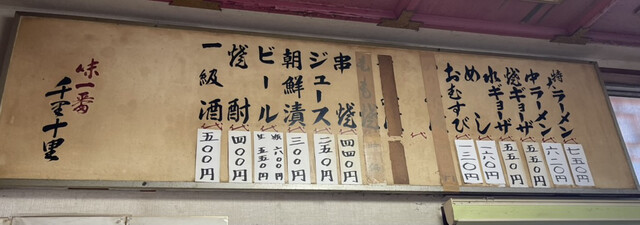 特大ラーメン 七五〇円
中ラーメン 六〇〇円
焼ギョーザ 五五〇円
水ギョーザ 五五〇円
めし 一六〇円
おむすび 一三〇円
串焼 四四〇円
ジュース 二五〇円
朝鮮漬 三〇〇円
ビール 大瓶 六〇〇円 生 五五〇円
焼酎 四〇〇円
一級酒 五〇〇円
味一番
千里十里